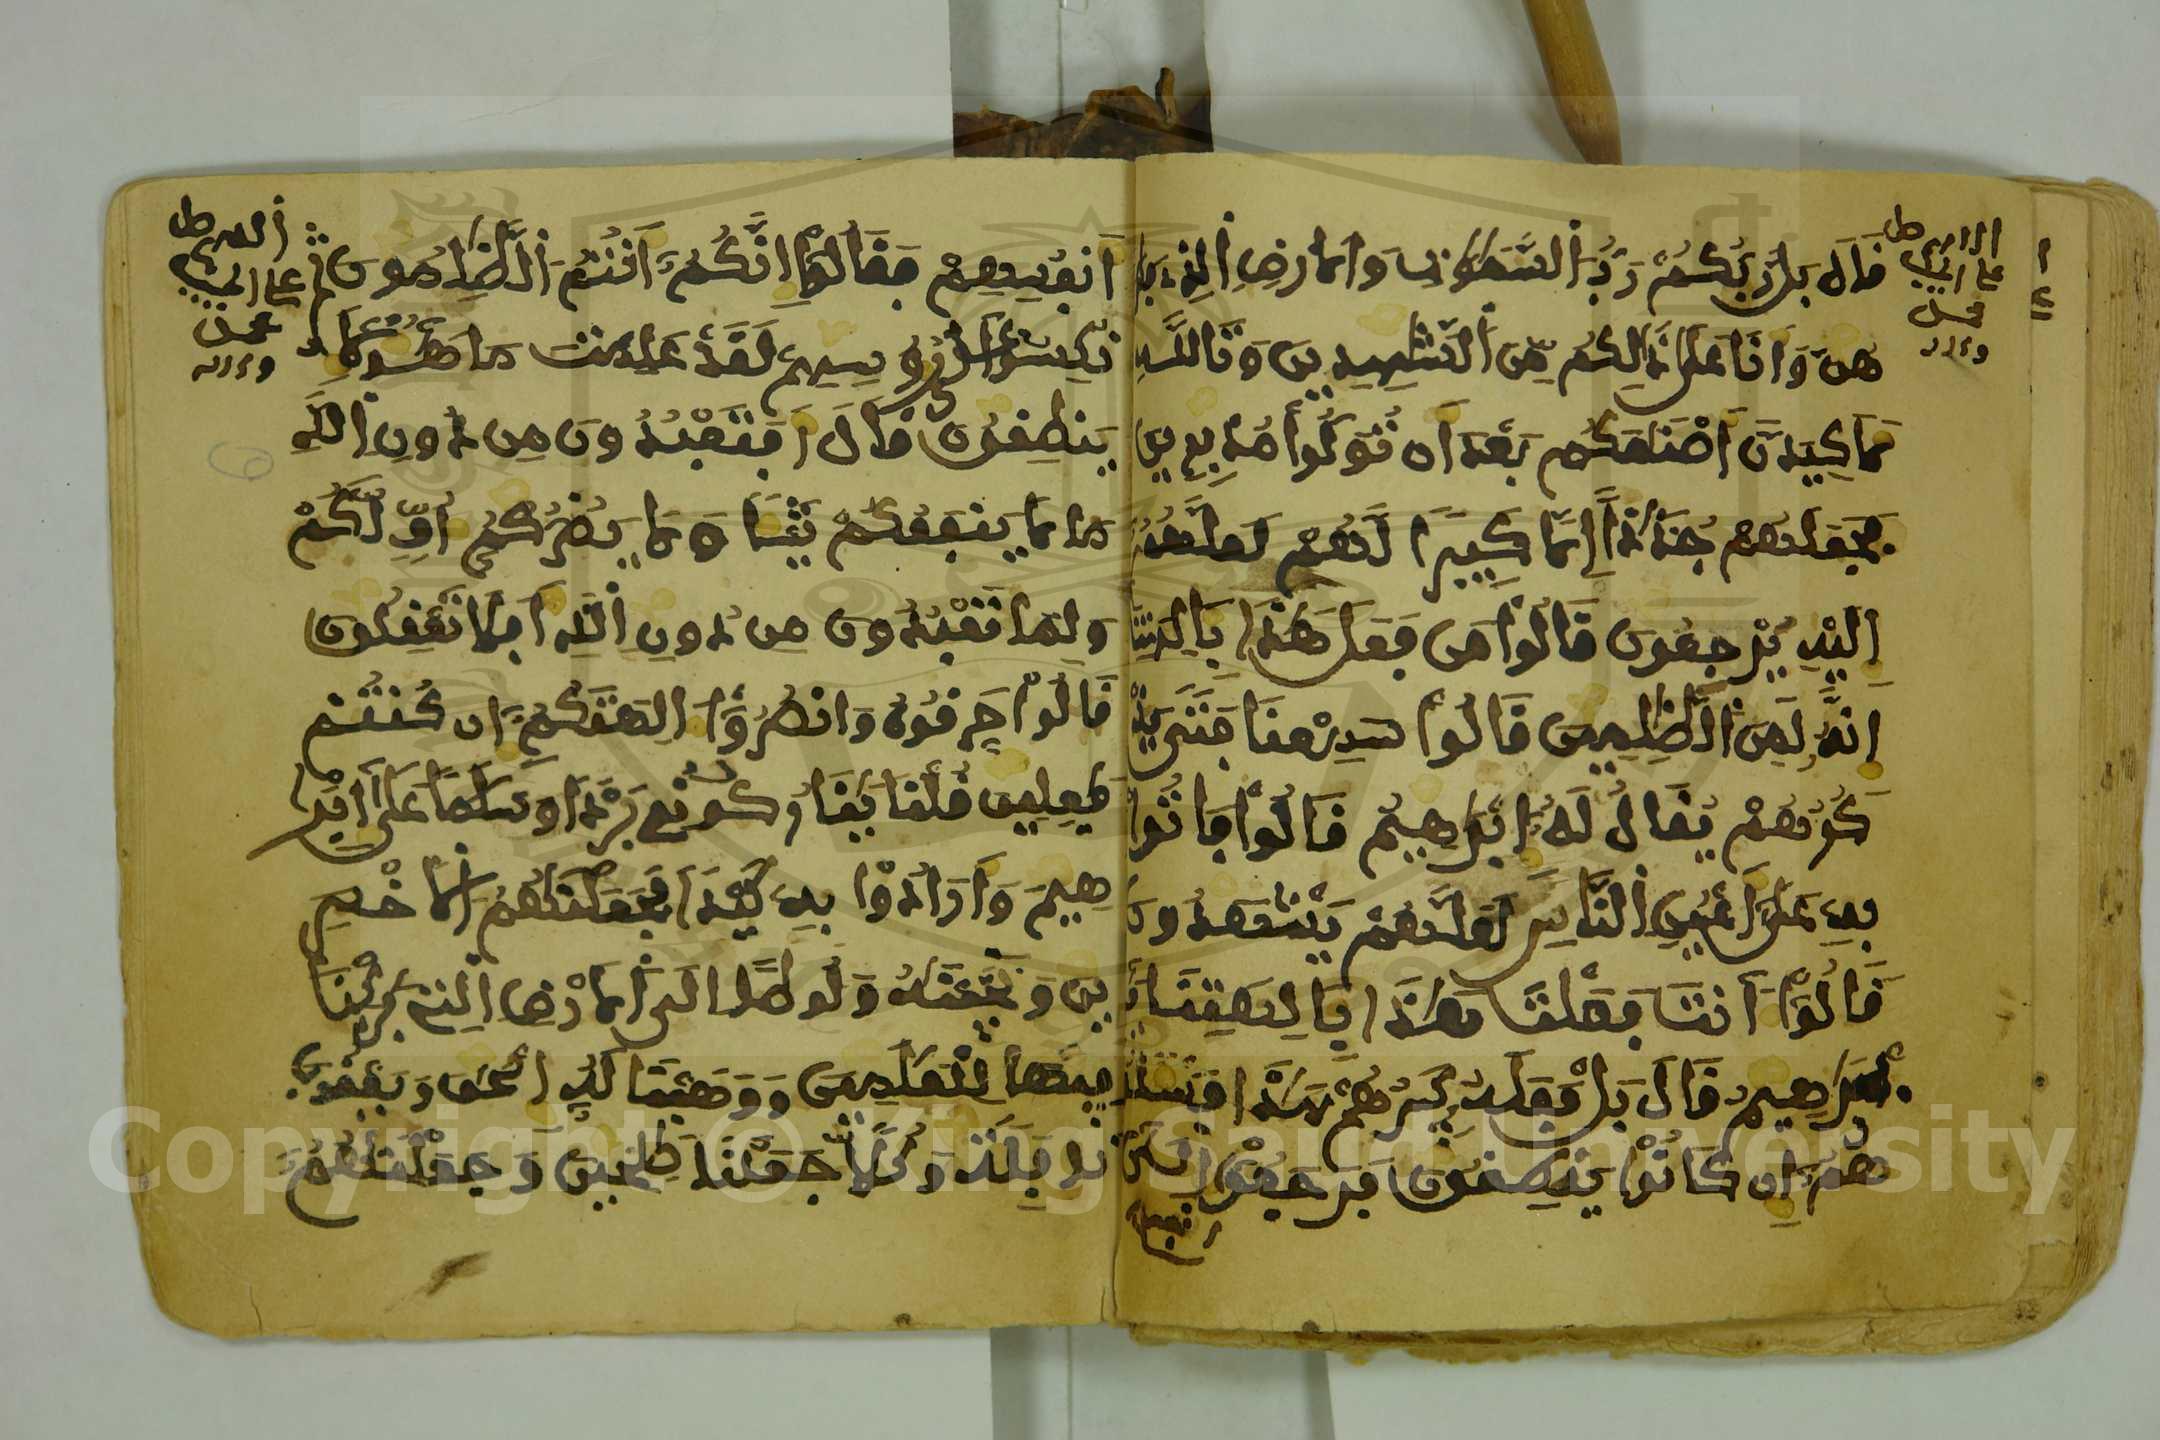 قال بل ربكم رب السموت والارض الذي فطر
هن وانا على ذلكم من الشهدين وتالله
لاكيدن اصنمكم بعد ان تولوا مدبرين
فجعلهم جذذا الا كبيرا لهم لعلهم
اليه يرجعون قالوا من فعل هذا بالهتنا
انه لمن الظلمين قالوا سمعنا فتى يذ
كرهم يقال له ابرهيم قالوا فاتوا
به على اعين الناس لعلهم يشهدون
قالوا انت فعلت هذا بالهتنا ي
ابرهيم قال بل فعله كبيرهم هذا فسئلو
هم ان كانوا ينطقون فرجعوا الى
انفسهم
انفسهم فقالوا انكم انتم الظلمون ثم
نكسوا على رءوسهم لقد علمت ما هؤلاء
ينطقون قال افتعبدون من دون الله
ما لا ينفعكم شيئا ولا يضركم اف لكم
ولما تعبدون من دون الله افلا تعقلون
قالوا حرقوه وانصروا الهتكم ان كنتم
فعلين قلنا ينار كوني بردا وسلما على ابر
هيم وارادوا به كيدا فجعلنهم الاخسر
ين ونجينه ولوطا الى الارض التي بركنا
فيها للعلمين ووهبنا له اسحق ويعقوب
نافلة وكلا جعلنا صلحين وجعلنهم
اللهم صل
على النبي
محمد
وءاله
Copyright © King Saud University